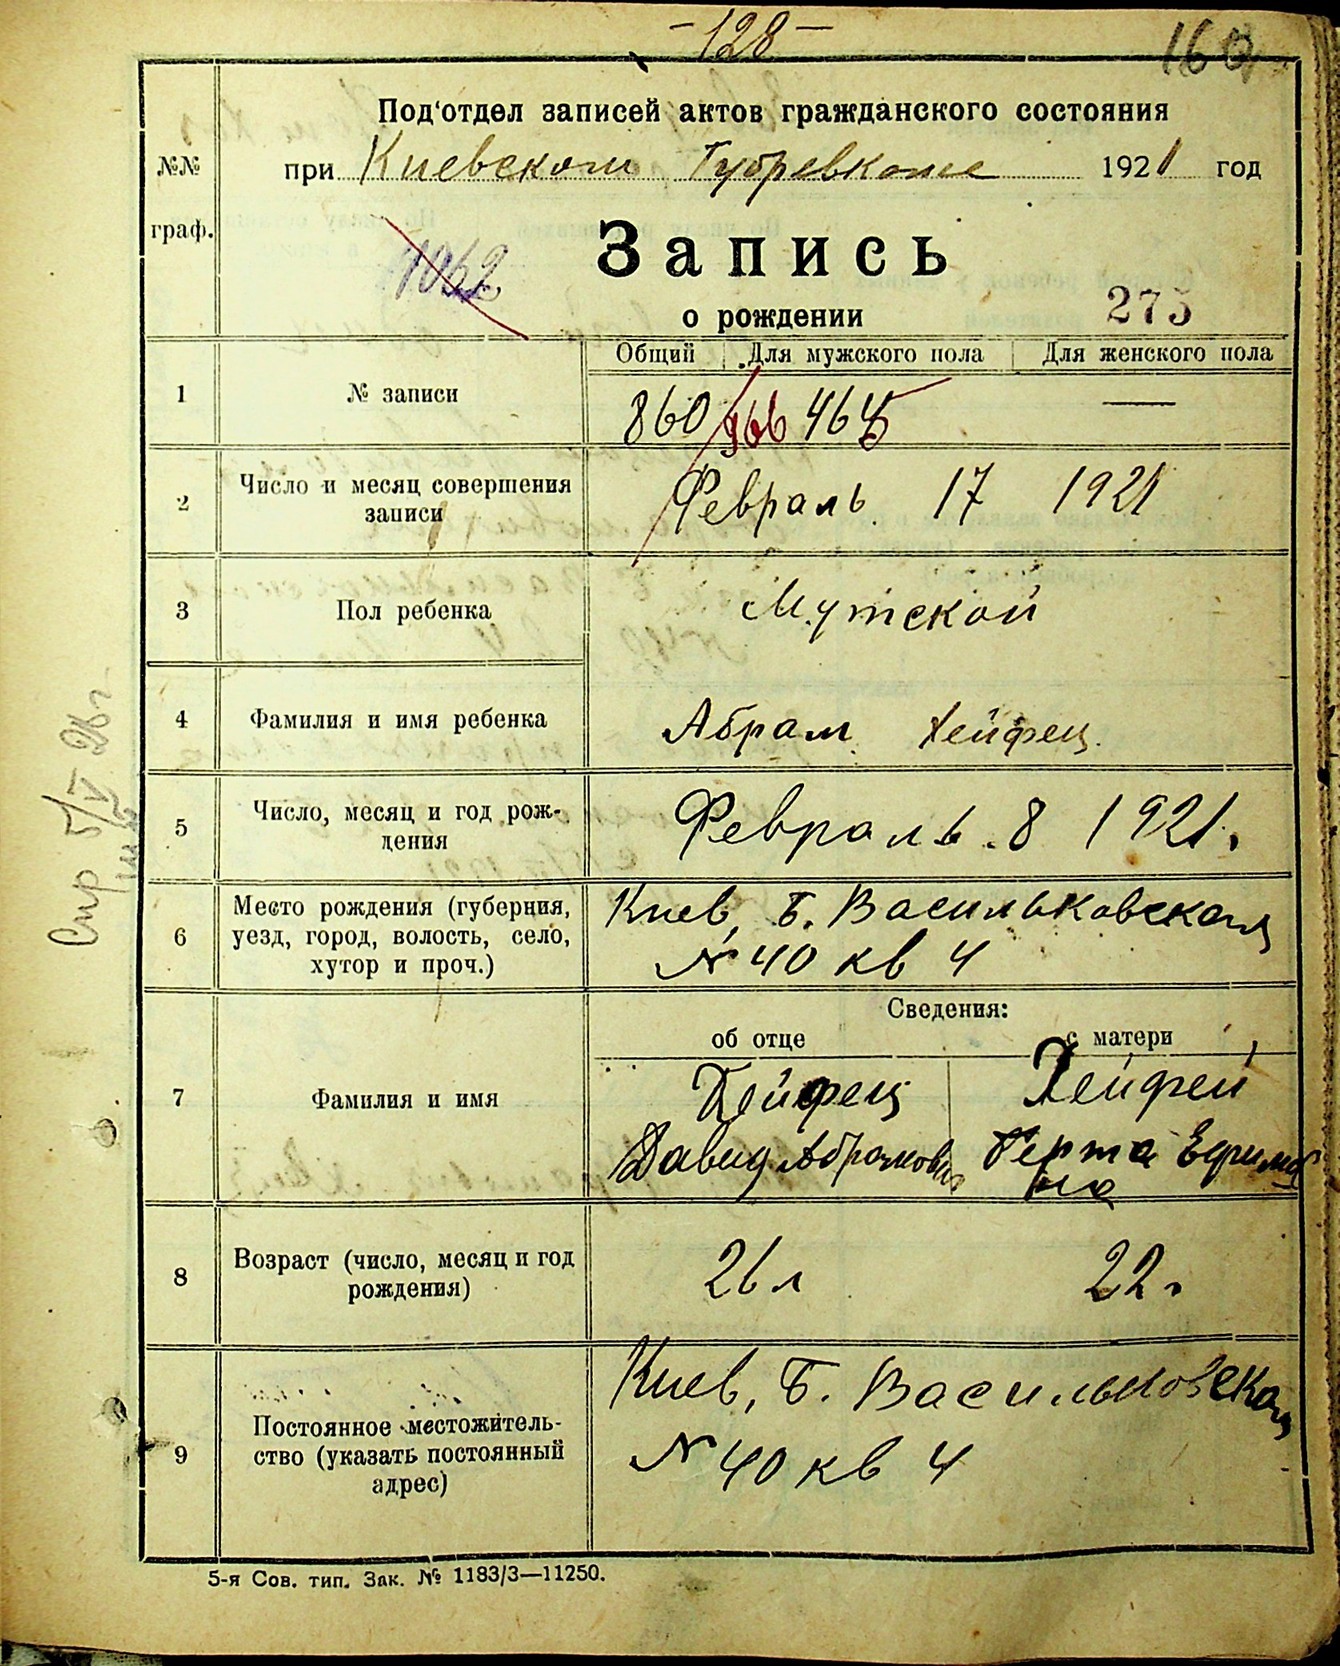 - 128 -
160
Под'отдел записей актов гражданского состояния
при Киевском Губревкоме 1921 год
№№
граф.
1062
Запись
о рождении
275
Общий Для мужского пола Для женского пола
1 № записи 860 466 464 5 —
2 Число и месяц совершения
записи
Февраль 17 1921
3 Пол ребенка Мужской
4 Фамилия и имя ребенка Абрам Хейфец
5 Число, месяц и год рож-
дения
Февраль 8 1921.
6 Место рождения (губерния,
уезд, город, волость, село,
хутор и проч.)
Киев, Б. Васильковская
№ 40 кв 4
Сведения:
об отце с матери
7 Фамилия и имя
Хейфец
Давид Абрамович
Хейфец
Берта Ефимов
на
8 Возраст (число, месяц и год
рождения)
26 л 22 г.
9 Постоянное местожитель-
ство (указать постоянный
адрес)
Киев, Б. Васильковская
№ 40 кв 4
5-я Сов. тип. Зак. № 1183/3—11250.
Спр 5/V 26 г